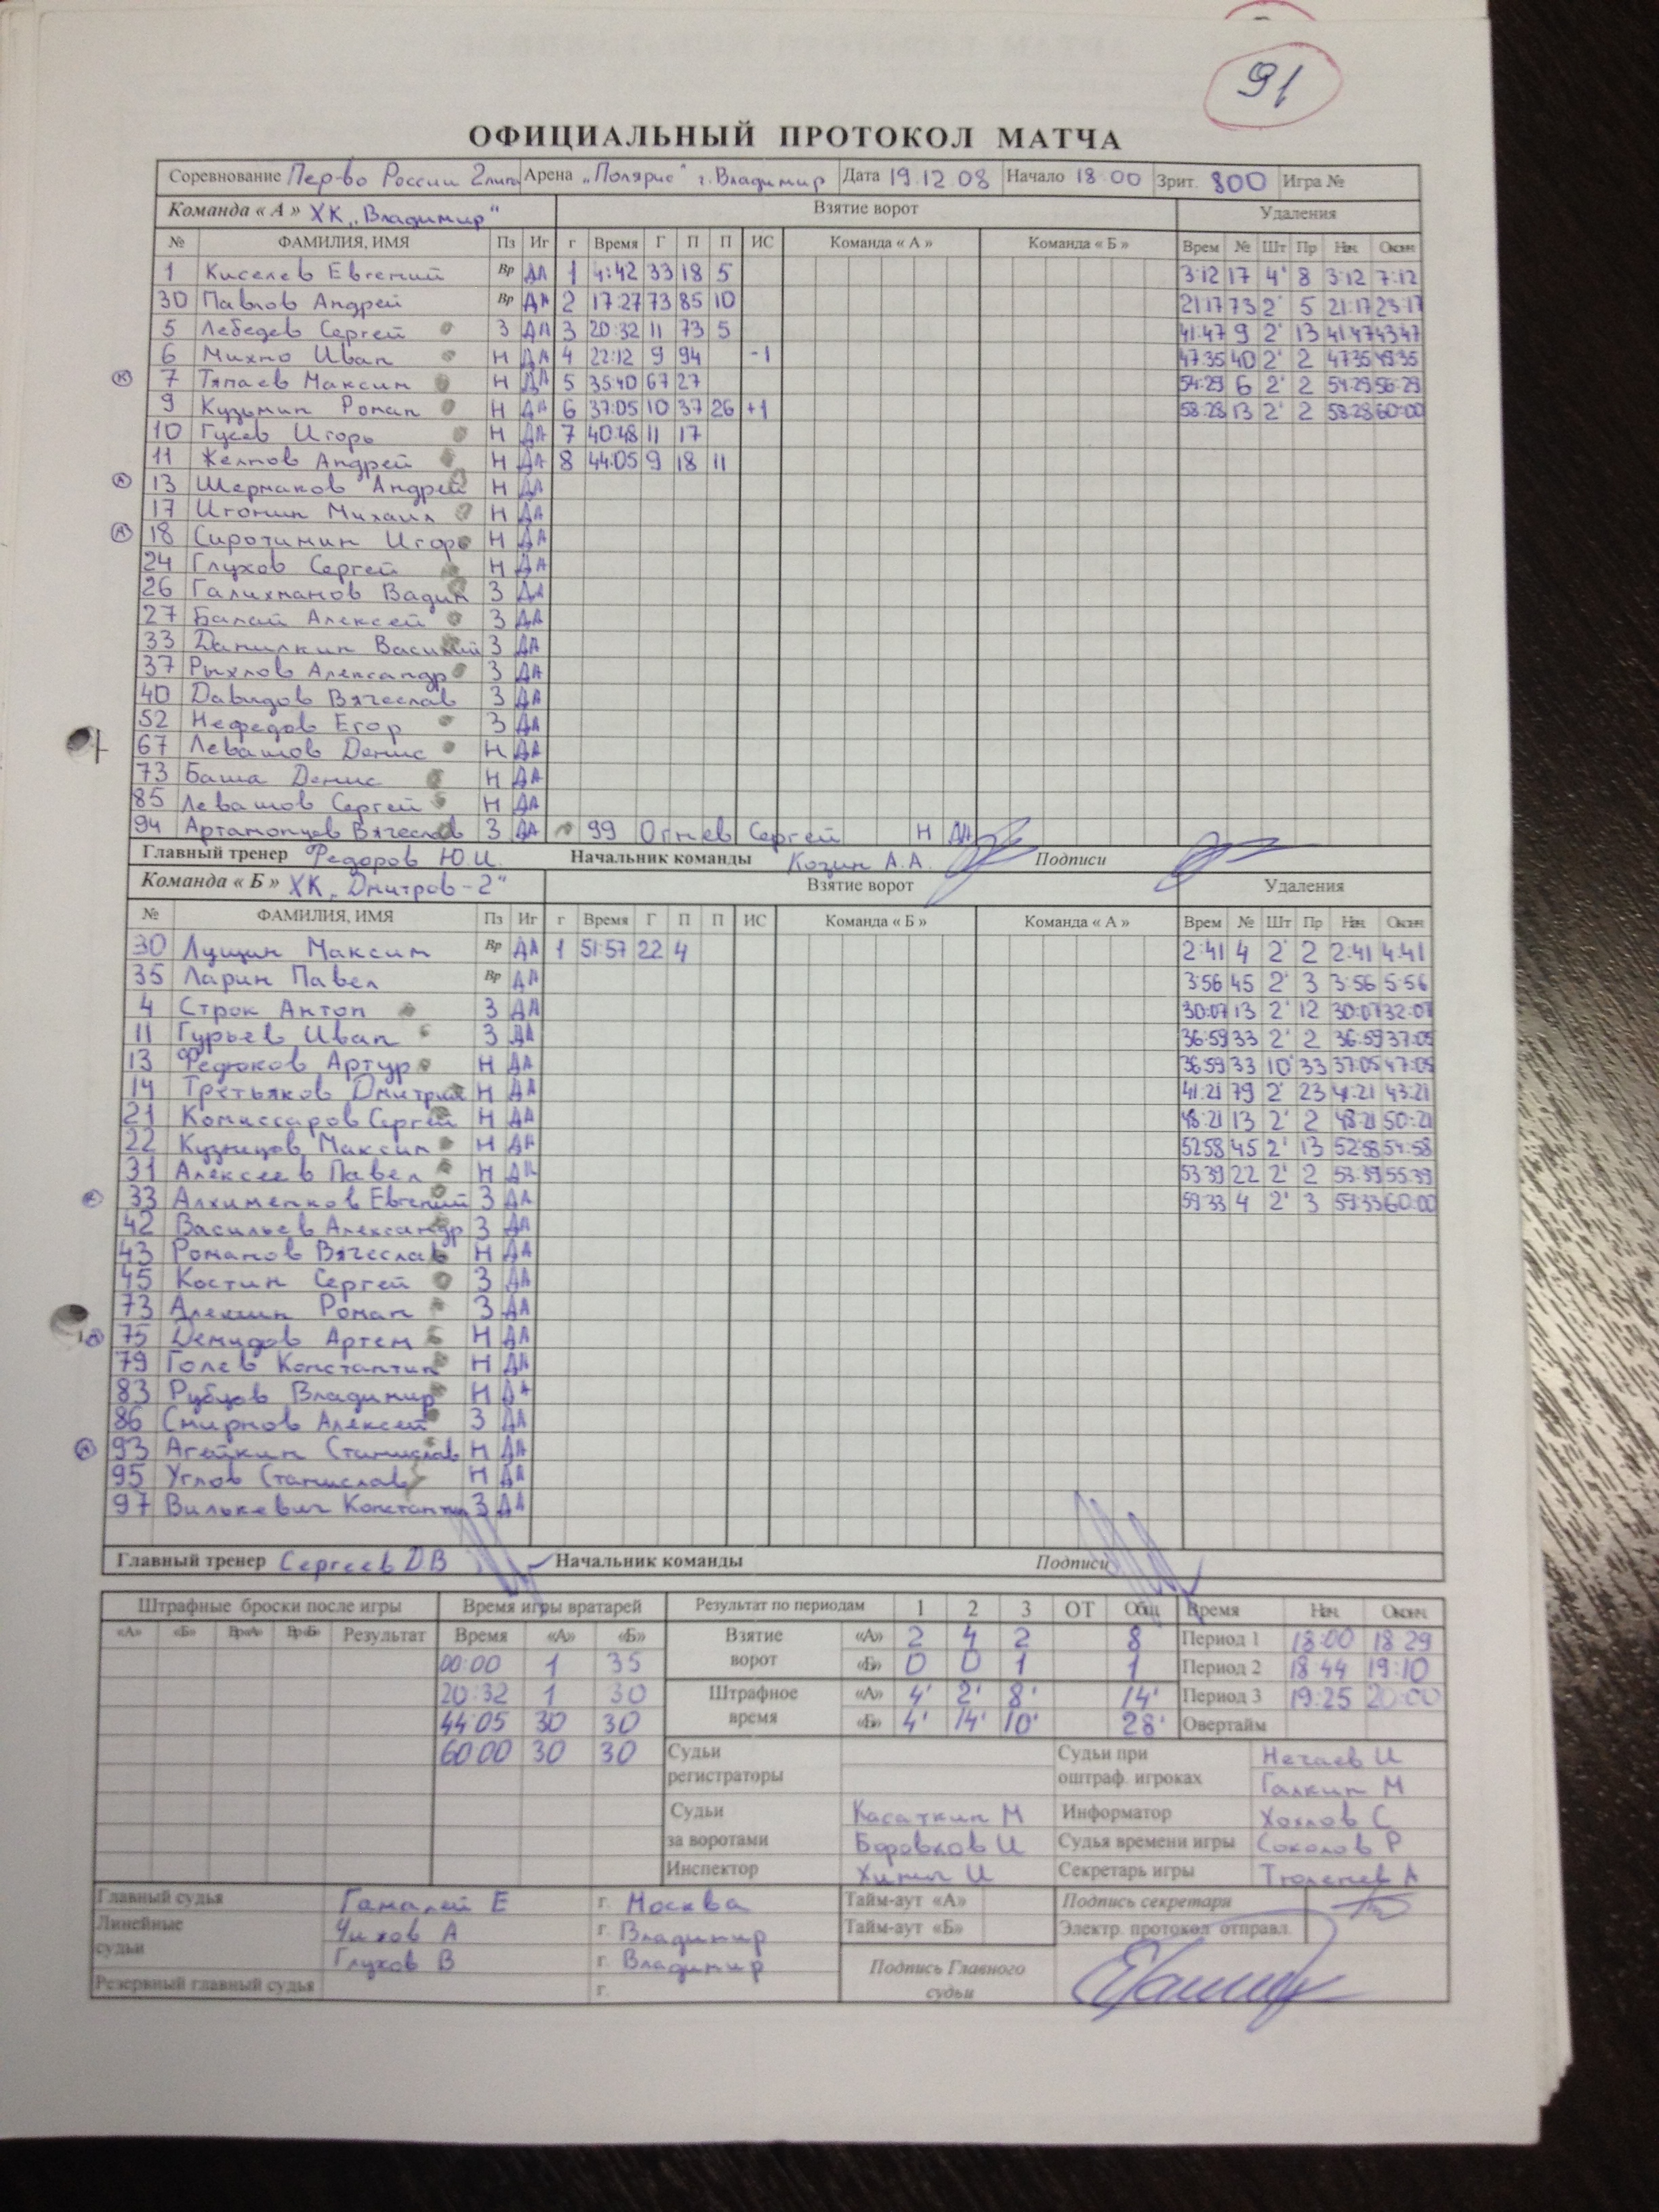 91
ОФИЦИАЛЬНЫЙ ПРОТОКОЛ МАТЧА
Соревнование Пер-во России 2 лига Арена „Полярис" г. Владимир Дата 19.12.08 Начало 18:00 Зрит. 800 Игра №
Команда « А » ХК „Владимир" Взятие ворот Удаления
№ ФАМИЛИЯ, ИМЯ Пз Иг г Время Г П П ИС Команда « А » Команда « Б » Врем № Шт Пр Нач Оконч
1 Киселев Евгений Вр ДА 1 4:42 33 18 5 3:12 17 4' 8 3:12 7:12
30 Павлов Андрей Вр ДА 2 17:27 73 85 10 21:17 73 2' 5 21:17 23:17
5 Лебедев Сергей З ДА 3 20:32 11 73 5 41:47 9 2' 13 41:47 43:47
6 Михно Иван Н ДА 4 22:12 9 94 -1 47:35 40 2' 2 47:35 49:35
К 7 Тяпаев Максим Н ДА 5 35:40 67 27 54:29 6 2' 2 54:29 56:29
9 Кузьмин Роман Н ДА 6 37:05 10 37 26 +1 58:28 13 2' 2 58:28 60:00
10 Гусев Игорь Н ДА 7 40:48 11 17
11 Желнов Андрей Н ДА 8 44:05 9 18 11
А 13 Шермаков Андрей Н ДА
17 Игонин Михаил Н ДА
А 18 Сиротинин Игорь Н ДА
24 Глухов Сергей Н ДА
26 Галихманов Вадим З ДА
27 Балай Алексей З ДА
33 Данилкин Василий З ДА
37 Рыхлов Александр З ДА
40 Давидов Вячеслав З ДА
52 Нефедов Егор З ДА
67 Левашов Денис Н ДА
73 Баша Денис Н ДА
85 Левашов Сергей Н ДА
94 Артамонцев Вячеслав З ДА 99 Огнев Сергей Н ДА
Главный тренер Федоров Ю.И. Начальник команды Козин А.А. Подписи
Команда « Б » ХК „Дмитров-2" Взятие ворот Удаления
№ ФАМИЛИЯ, ИМЯ Пз Иг г Время Г П П ИС Команда « Б » Команда « А » Врем № Шт Пр Нач Оконч
30 Лущин Максим Вр ДА 1 51:57 22 4 2:41 4 2' 2 2:41 4:41
35 Ларин Павел Вр ДА 3:56 45 2' 3 3:56 5:56
4 Строк Антон З ДА 30:07 13 2' 12 30:07 32:07
11 Гурьев Иван З ДА 36:59 33 2' 2 36:59 37:05
13 Федюков Артур Н ДА 36:59 33 10' 33 37:05 47:05
14 Третьяков Дмитрий Н ДА 41:21 79 2' 23 41:21 43:21
21 Комиссаров Сергей Н ДА 48:21 13 2' 2 48:21 50:21
22 Кузнецов Максим Н ДА 52:58 45 2' 13 52:58 54:58
31 Алексеев Павел Н ДА 53:39 22 2' 2 53:39 55:39
К 33 Алхименков Евгений З ДА 59:33 4 2' 3 59:33 60:00
42 Васильев Александр З ДА
43 Романов Вячеслав Н ДА
45 Костин Сергей З ДА
73 Алешин Роман З ДА
А 75 Демидов Артем Н ДА
79 Голев Константин Н ДА
83 Рубцов Владимир Н ДА
86 Смирнов Алексей З ДА
А 93 Агейкин Станислав Н ДА
95 Углов Станислав Н ДА
97 Вилькевич Константин З ДА
Главный тренер Сергеев Д В Начальник команды Подписи
Штрафные броски после игры Время игры вратарей Результат по периодам 1 2 3 ОТ Общ Время Нач. Оконч.
«А» «Б» Вр«А» Вр«Б» Результат Время «А» «Б» Взятие ворот «А» 2 4 2 8 Период 1 18:00 18 29
00:00 1 35 «Б» 0 0 1 1 Период 2 18:44 19:10
20:32 1 30 Штрафное время «А» 4' 2' 8' 14' Период 3 19:25 20:00
44:05 30 30 «Б» 4' 14' 10' 28' Овертайм
60:00 30 30 Судьи регистраторы Судьи при оштраф. игроках Нечаев И
Галкин М
Судьи за воротами Касаткин М Информатор Хохлов С
Боровков И Судья времени игры Соколов Р
Инспектор И Секретарь игры Тюленев А
Главный судья Гамалей Е г. Москва Тайм-аут «А» Подпись секретаря
Линейные судьи Чихов А г. Владимир Тайм-аут «Б» Электр. протокол отправл.
Глухов В г. Владимир Подпись Главного судьи
Резервный главный судья г.